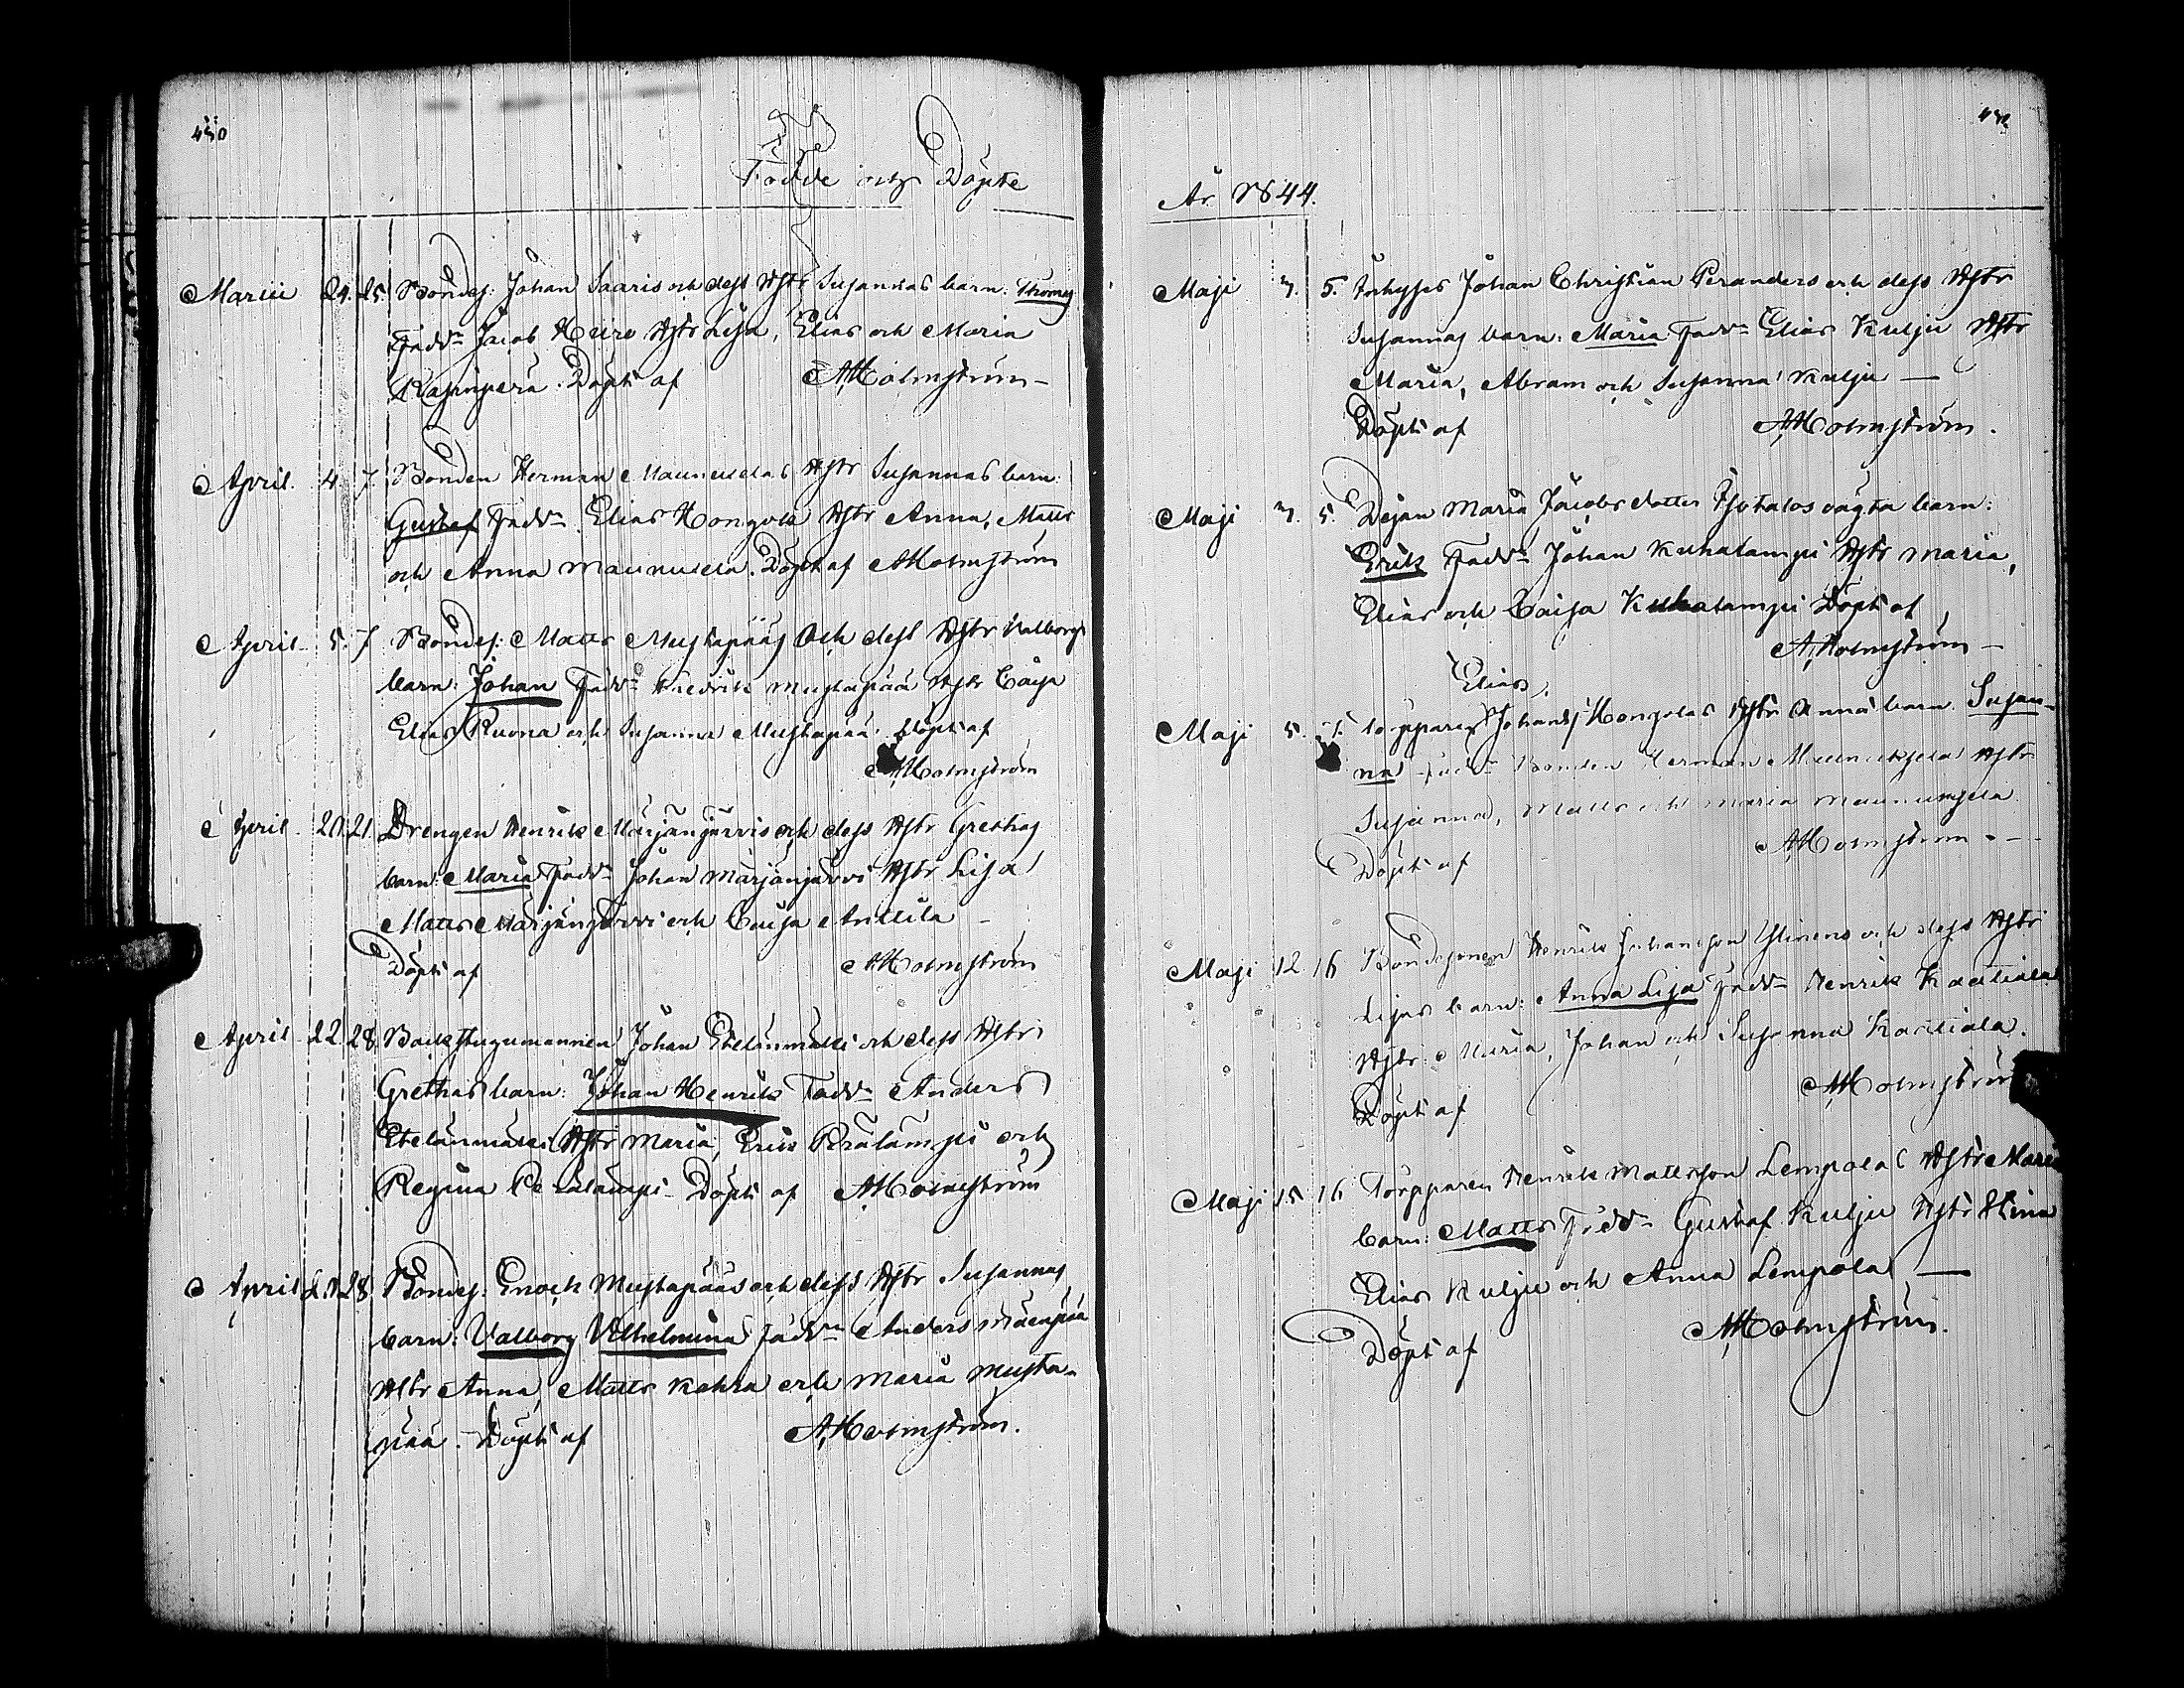 450
Födde och Döpte
Martii 24. 25. Bondes: Johan Saaris och dess Hstr Susannas barn: Thomas
Fadd: Jacob Hiiro Hstr Lisa, Elias och Maria
Döpt af AHolmström
April. 4. 7. Bonden Herman Maunuxelas Hstr Susannas barn:
Gustaf Fadd: Elias Hongola Hstr Anna, Matts
och Anna Maunuxela. Döpt af AHolmström
April 5. 7 Bondes: Matts Mustapääs och dess Hstr Valborgs
barn: Johan Fadd: Fredrik Mustapää Hstr Caisa
Elias Ruona och Susanna Mustapää. Döpt af
AHolmström
April 20. 21. Drengen Henrik Marjanjärvis och dess Hstr Grethas
barn: Maria Fadd: Johan Marjanjärvi Hstr Lisa
Matts Marjanjärvi och Caisa Anttila
Döpt af AHolmström
April 22. 28. Backstugumannen Johan Etelänmäki och dess Hstr
Grethas barn: Johan Henrik Fadd: Anders
Etelänmäki Hstr Maria, Erik Perälampi och
Regina Perälampi Döpt af AHolmström
April 28. Bondes: Enoch Mustapääs och dess Hstr Susannas
barn: Valborg Vilhelmina Fadd: Anders
Hstr Anna, Matts Kahra och Maria Musta-
pää. Döpt af AHolmström.
År 1844.
Maji 3. 5. Inhyses Johan Christian Peranders och dess Hstr
Susannas barn: Maria Fadd: Elias Kulju Hstr
Maria, Abram och Susanna Kulju
Döpt af AHolmström.
Maji 3. 5. Dejan Maria Jacobsdotter oägta barn:
Erik Fadd: Johan Kuhalampi Hstr Maria,
Elias och Caisa Kuhalampi Döpt af
AHolmström
Elias
Maji 5. Torpparen Johans: Hongolas Hstr Anna barn Susan-
na Fadd: Bonden Herman Maunuxela Hstr
Susanna, Matts och Maria Maunuxela
Döpt af AHolmström
Maji 12 16 Bondesonen Henrik Johansson Ylinens och dess Hstr
Lisas barn: Anna Lisa Fadd: Henrik Kaatiala
Hstr: Maria, Johan och Susanna Kaatiala.
Döpt af AHolmström
Maji 15 16 Torpparen Henrik Mattsson Lempola Hstr Maria
barn: Matts Fadd: Gustaf Kulju Hstr Stina
Elias Kulju och Anna Lempola
Döpt af AHolmström.